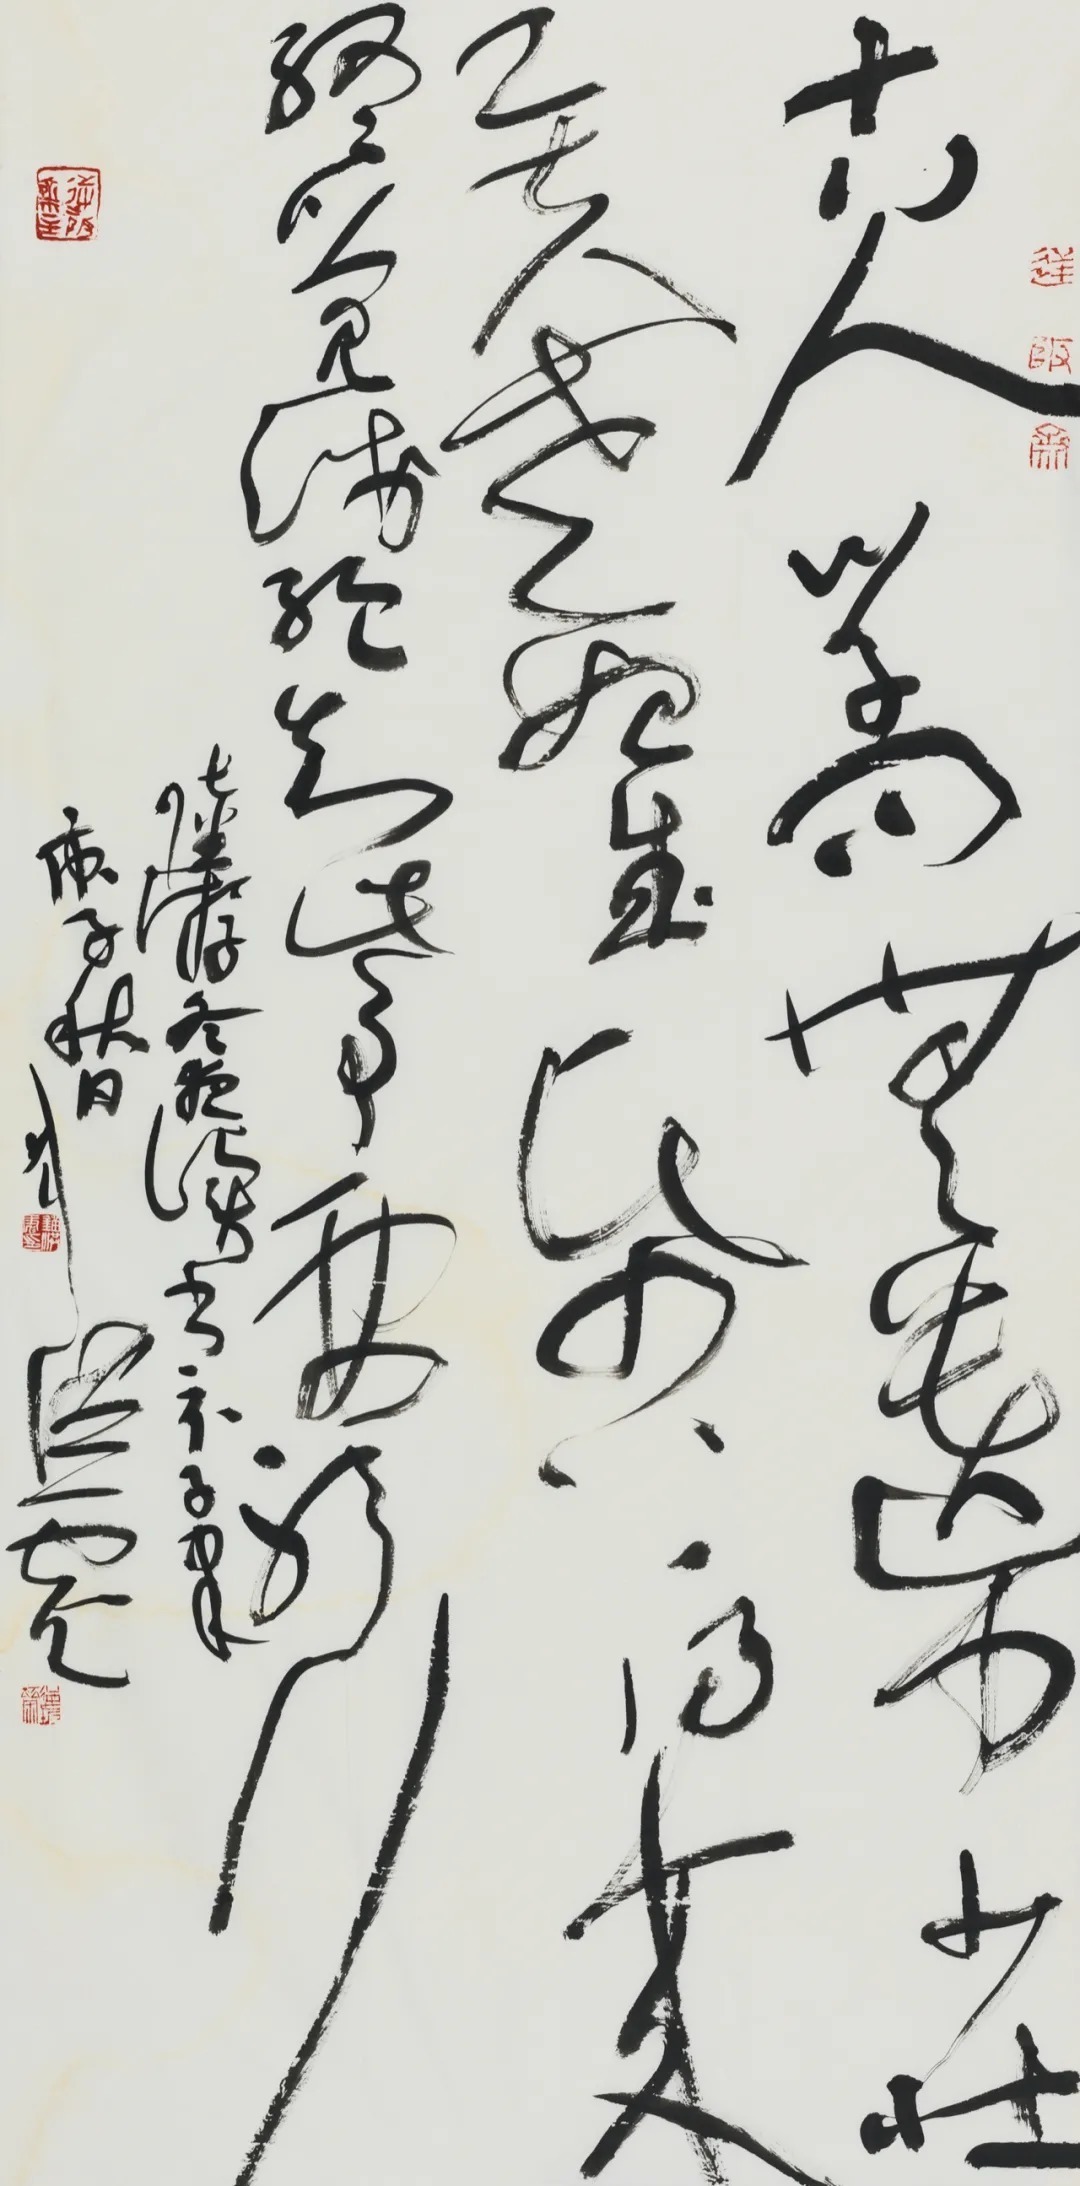 古人学问无遗力少壮
工夫老始成纸上得来
终觉浅绝知此事要躬行
陆游冬夜读书示子聿
庚子秋日